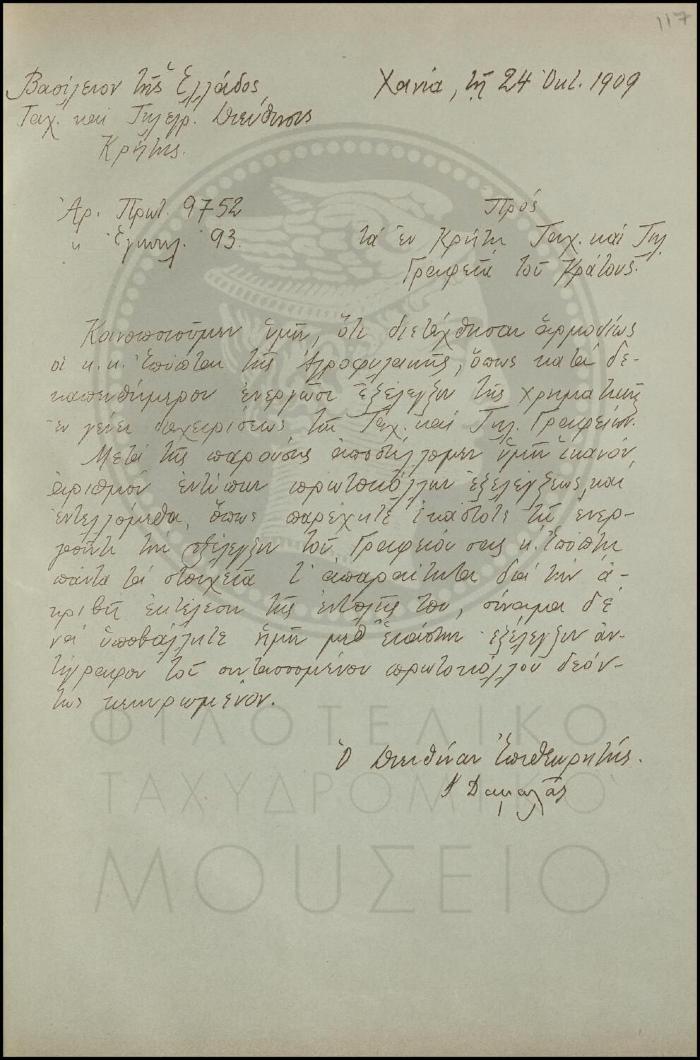 117
Βασίλειον τῆς Ἑλλάδος
Χανιά, τῇ 24 Ὀκτ. 1909
Ταχ. καὶ Τηλεγρ. Διεύθυνσις
Κρήτης.
Ἀρ. Πρωτ. 9752
Πρός
" Ἐγκυκλ. 93.
τὰ ἐν Κρήτῃ Ταχ. καὶ Τηλ.
Γραφεῖα τοῦ Κράτους.
Κοινοποιοῦμεν ὑμῖν, ὅτι διετάχθησαν ἁρμοδίως
οἱ κ.κ. Ἐπόπται τῆς Ἀγροφυλακῆς, ὅπως κατὰ δε-
καπενθήμερον ἐνεργῶσι ἐξέλεγξιν τῆς χρηματικῆς
ἐν γένει διαχειρίσεως τῶν Ταχ. καὶ Τηλ. Γραφείων.
Μετὰ τῆς παρούσης ἀποστέλλομεν ὑμῖν ἱκανόν
ἀριθμὸν ἐντύπων πρωτοκόλλων ἐξελέγξεως, καὶ
ἐντελλόμεθα, ὅπως παρέχητε ἑκάστοτε τῷ ἐνερ-
γοῦντι τὴν ἐξέλεγξιν τοῦ Γραφείου σας κ. Ἐπόπτῃ
πάντα τὰ στοιχεῖα τ' ἀπαραίτητα διὰ τὴν ἀ-
κριβῆ ἐκτέλεσιν τῆς ἐντολῆς του, σύναμα δέ
νὰ ὑποβάλλητε ἡμῖν μεθ' ἑκάστην ἐξέλεγξιν ἀν-
τίγραφον τοῦ συντασσομένου πρωτοκόλλου δεόν-
τως κεκυρωμένον.
Ὁ Διευθύνων Ἐπιθεωρητής.
Δαμαλᾶς
ΦΙΛΟΤΕΛΙΚΟ
ΤΑΧΥΔΡΟΜΙΚΟ
ΜΟΥΣΕΙΟ